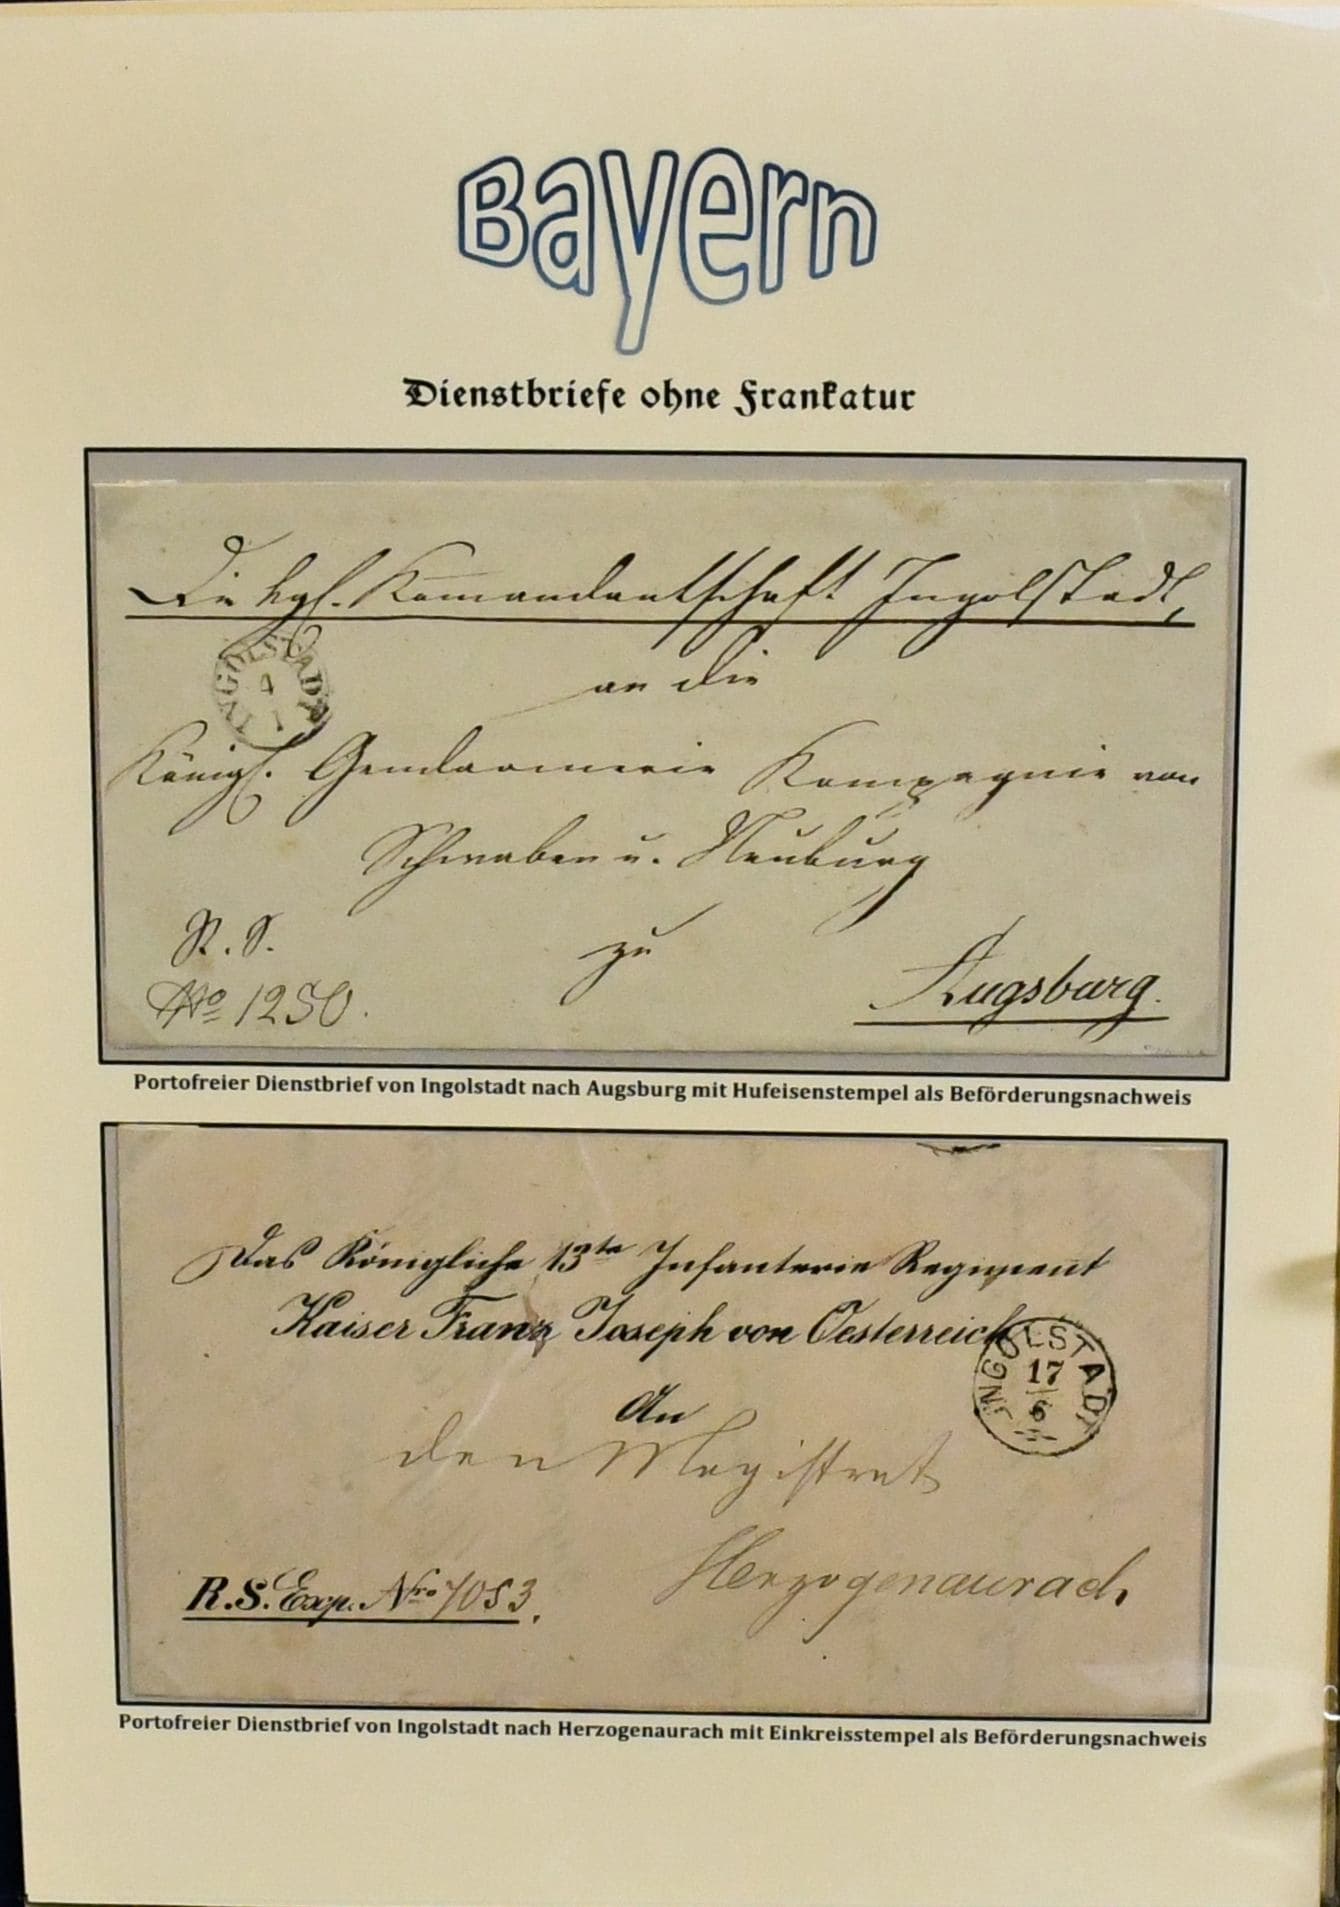 Bayern
Dienstbriefe ohne Frankatur
Die kgl. Komandantschaft Ingolstadt,
INGOLSTADT
4
1
an die
Königl. Gendarmerie Kompagnie von
Schwaben u. Neuburg
R. S.
zu
No 1250.
Augsburg.
Portofreier Dienstbrief von Ingolstadt nach Augsburg mit Hufeisenstempel als Beförderungsnachweis
Das Königliche 13te Infanterie Regiment
Kaiser Franz Joseph von Oesterreich
INGOLSTADT
17
6
An
den Magistrat
Herzogenaurach
R.S. Exp. Nro 7053.
Portofreier Dienstbrief von Ingolstadt nach Herzogenaurach mit Einkreisstempel als Beförderungsnachweis